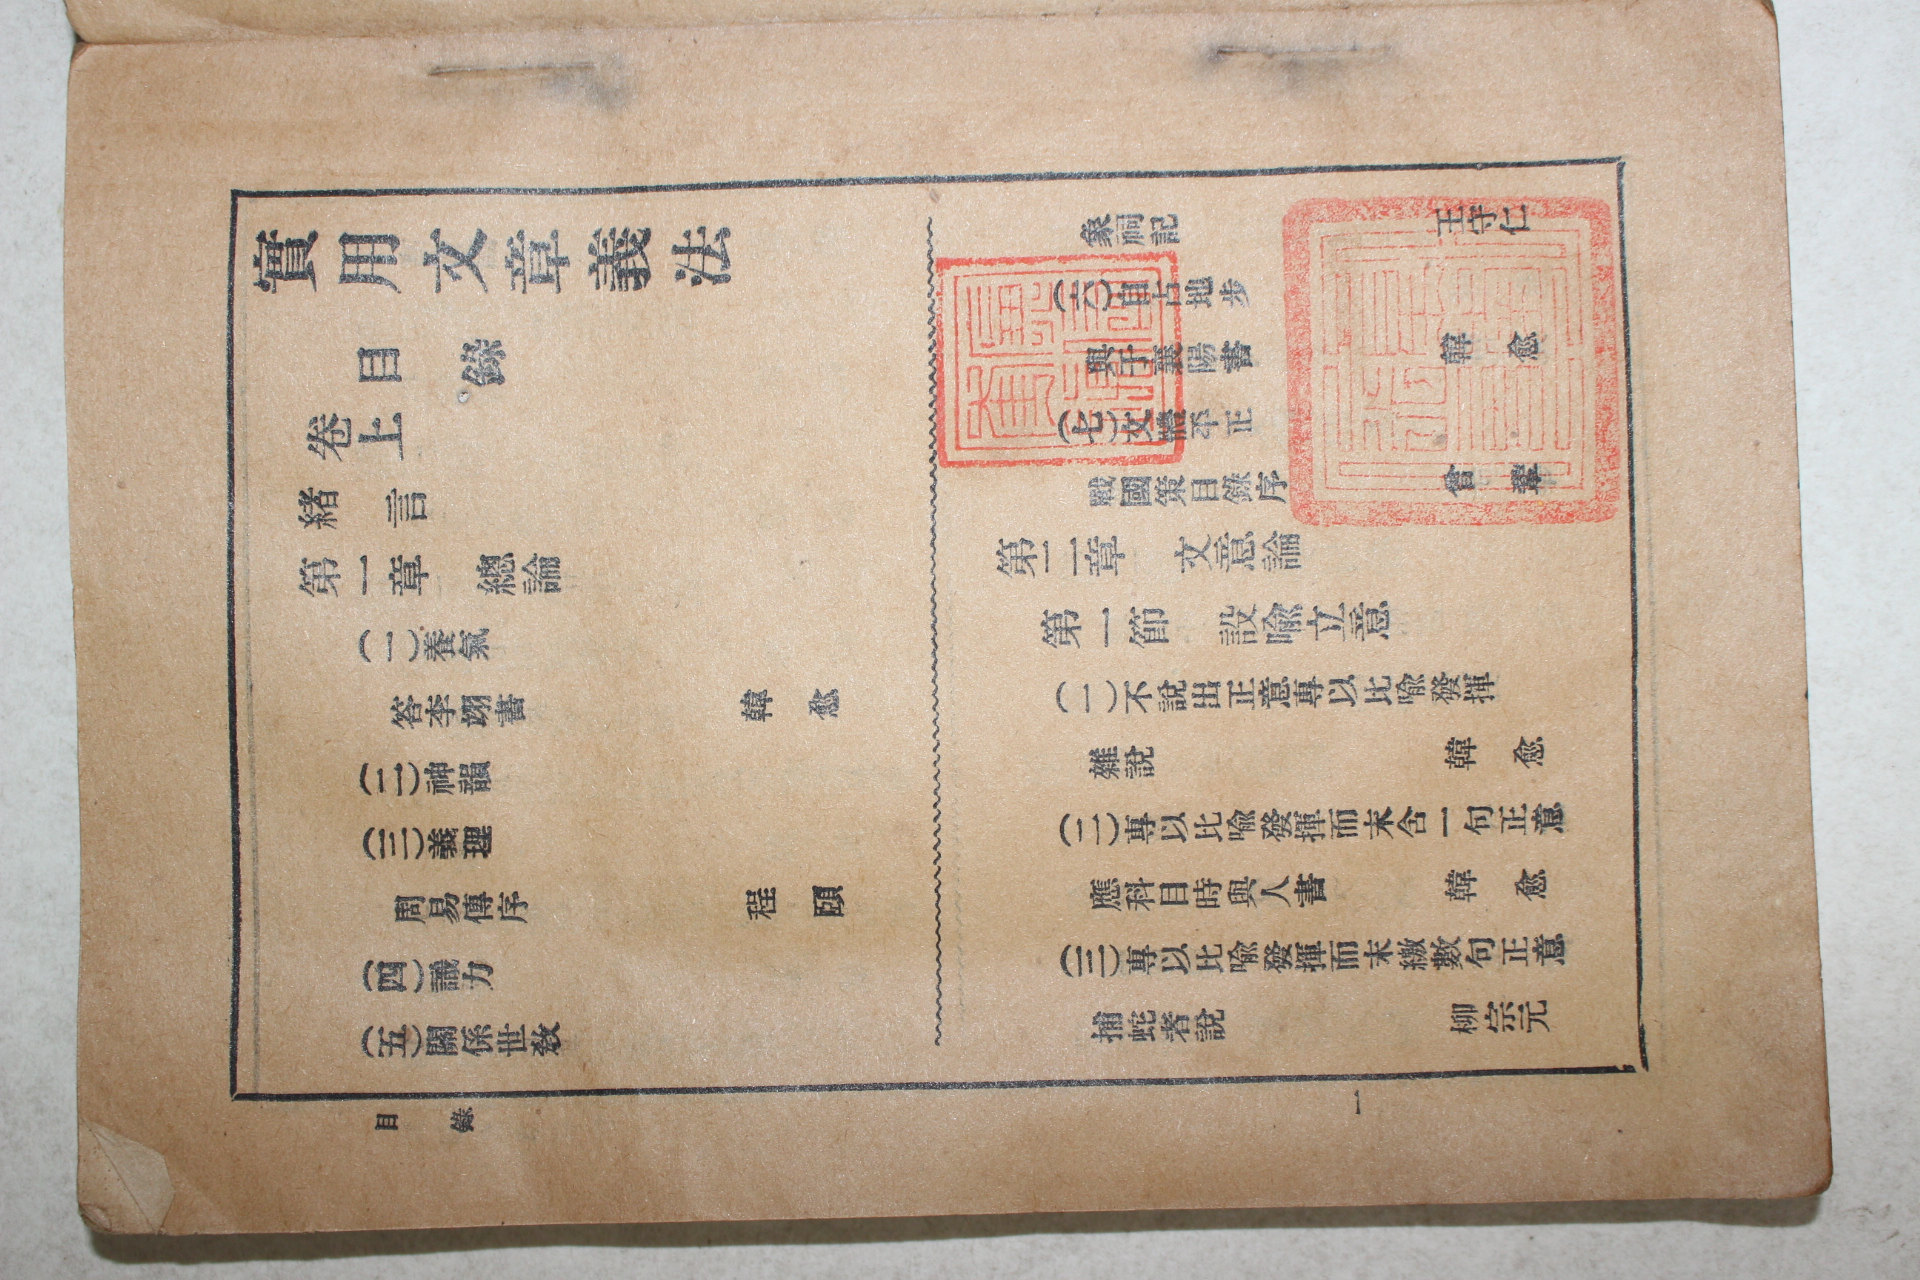 實用文章義法
目錄
卷上
緒言
第一章　總論
(一)養氣
答李翊書　韓愈
(二)神韻
(三)義理
周易傳序　程頤
(四)識力
(五)關係世敎
象祠記　王守仁
(六)自占地步
與于襄陽書　韓愈
(七)文體平正
戰國策目錄序　曾鞏
第二章　文意論
第一節　設喩立意
(一)不說出正意專以比喩發揮
雜說　韓愈
(二)專以比喩發揮而末含一句正意
應科目時與人書　韓愈
(三)專以比喩發揮而末繳數句正意
捕蛇者說　柳宗元
目錄
1